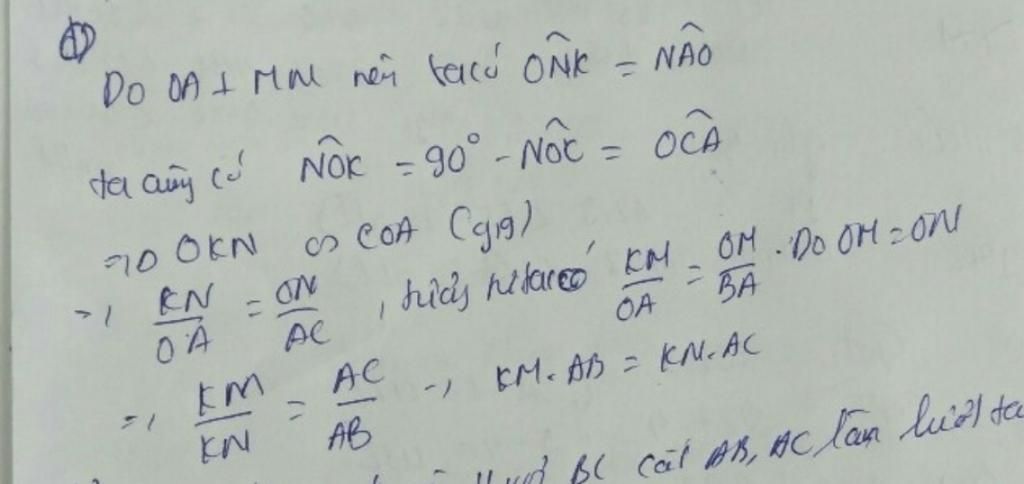 Do OA ⊥ MN nên ta có ON̂K = NÂO
ta cũng có NÔK = 90° - NÔC = OĈA
=> Δ OKN ∽ COA (g.g)
=> KN/OA = ON/AC, tương tự ta có KM/OA = OM/BA. Do OM = ON
=> KM/KN = AC/AB => KM.AB = KN.AC
BC cắt AB, AC lần lượt tại